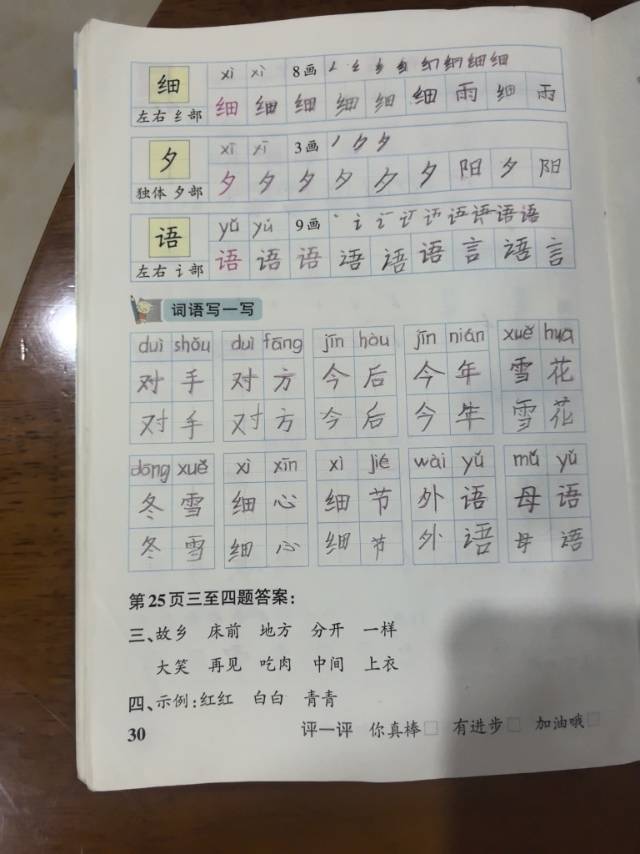 细 xì xì 8画
左右 纟部 细 细 细 细 细 细 雨 细 雨
夕 xī xī 3画
独体 夕部 夕 夕 夕 夕 夕 夕 阳 夕 阳
语 yǔ yǔ 9画
左右 讠部 语 语 语 语 语 语 言 语 言
词语写一写
duì shǒu duì fāng jīn hòu jīn nián xuě hua
对 手 对 方 今 后 今 年 雪 花
对 手 对 方 今 后 今 年 雪 花
dōng xuě xì xīn xì jié wài yǔ mǔ yǔ
冬 雪 细 心 细 节 外 语 母 语
冬 雪 细 心 细 节 外 语 母 语
第25页三至四题答案：
三、故乡 床前 地方 分开 一样
大笑 再见 吃肉 中间 上衣
四、示例：红红 白白 青青
30 评一评 你真棒 有进步 加油哦